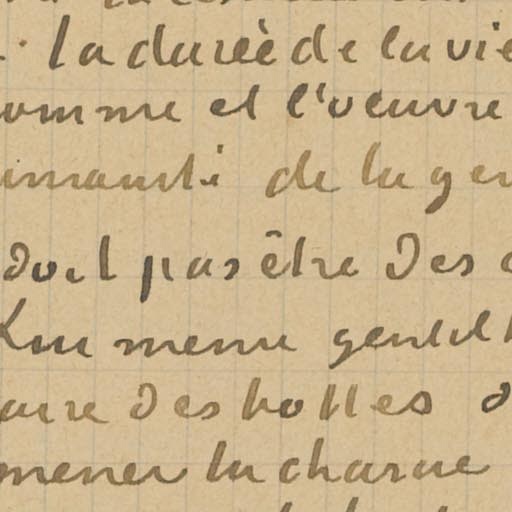 la dureè de la vie
omme et l'oeuvre
de la gen
doit pas être des
meme gentilh
aire des bottes
mener la charrue